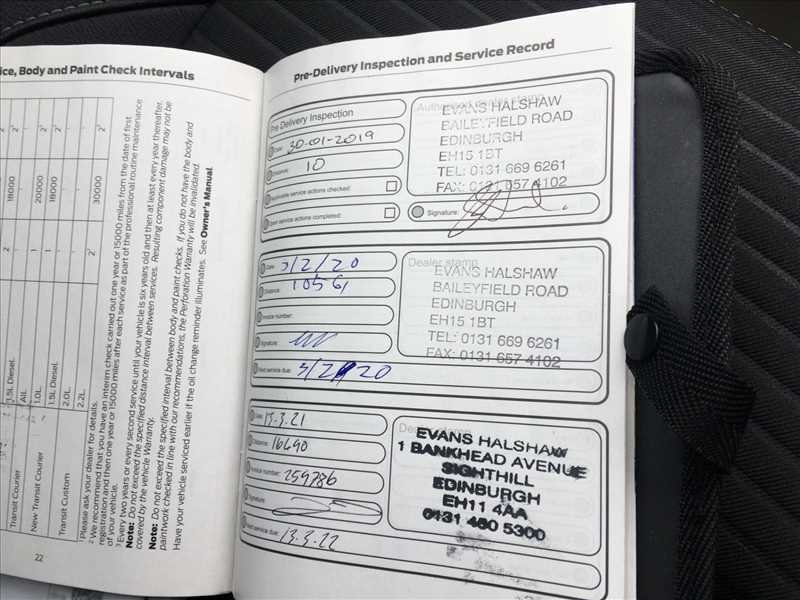 ice, Body and Paint Check Intervals
1.5L Diesel. 2 18000 2¹
Transit Courier
All. - - -
New Transit Courier
1.0L. 1 20000 2¹
1.5L Diesel. 1 18000 2¹
Transit Custom
2.0L.
2.2L. 2¹ 30000 2¹
¹ Please ask your dealer for details.
² We recommend that you have an interim check carried out one year or 15000 miles from the date of first
registration and then one year or 15000 miles after each service as part of the professional routine maintenance
of your vehicle.
³ Every two years or every second service until your vehicle is six years old and then at least every year thereafter.
Note: Do not exceed the specified distance interval between services. Resulting component damage may not be
covered by the vehicle Warranty.
Note: Do not exceed the specified interval between body and paint checks. If you do not have the body and
paintwork checked in line with our recommendations, the Perforation Warranty will be invalidated.
Have your vehicle serviced earlier if the oil change reminder illuminates. See Owner's Manual
22
Pre-Delivery Inspection and Service Record
Pre Delivery Inspection
Date: 30-01-2019
Distance: 10
Applicable service actions checked:
Open service actions completed:
Authorised dealer stamp
EVANS HALSHAW
BAILEYFIELD ROAD
EDINBURGH
EH15 1BT
TEL: 0131 669 6261
FAX: 0131 657 4102
Signature:
Date: 3/2/20
Distance: 10561
Invoice number:
Signature:
Next service due: 3/2/20
Dealer stamp
EVANS HALSHAW
BAILEYFIELD ROAD
EDINBURGH
EH15 1BT
TEL: 0131 669 6261
FAX: 0131 657 4102
Date: 13.3.21
Distance: 16490
Invoice number: 259786
Signature:
Next service due: 13.3.22
Dealer stamp
EVANS HALSHAW
1 BANKHEAD AVENUE
SIGHTHILL
EDINBURGH
EH11 4AA
0131 460 5300